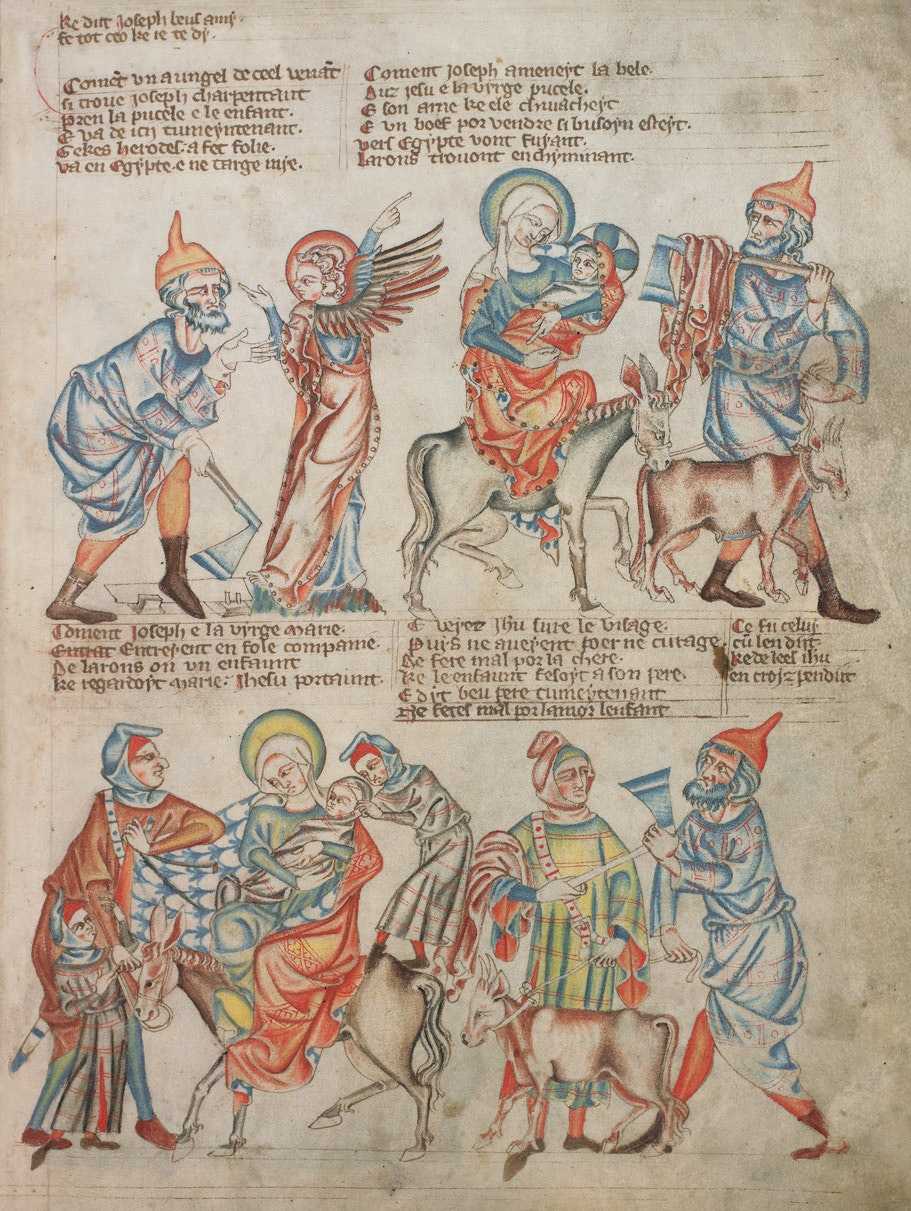 Ke dist Joseph beus amy.
Fe tot ceo ke ie te dy.
Coment un aungel de ceel venat
Si trove Joseph charpentant
Pren la pucele e le enfant.
E va de ici tumeyntenant.
Gekes herodes a fet folie.
Va en Egypte e ne targe mye.
Coment Joseph ameneyt la bele.
Auz Jesu e la vyrge pucele.
E son ame ke ele chivacheyt
E un boef por vendre si busoyn esteyt.
Vers Egypte vont fuyant.
Larons trovont enchyminant.
Coment Joseph e la vyrge Marie.
Entrerent en fole compaine.
De larons ou un enfaunt
Ke regardoyt Marie: Jhesu portaunt.
E veyez Jhu sure le visage.
Puys ne aveyent foer ne curage.
De fere mal por la chere.
Ke le enfaunt fesoyt a son pere.
E dyt beu fere tumeytenant
Ne fetes mal por lamor lenfant
Ce fu celuy
cū len dist
Ke de leel ihu
en croyz pendut